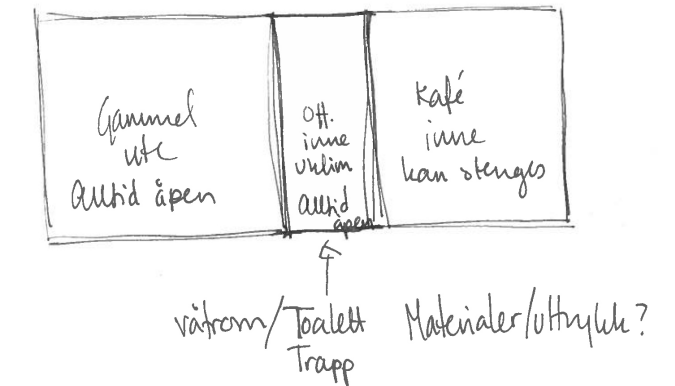 Gammel
ute
Alltid åpen
Off.
inne
uklim
Alltid
åpen
Kafé
inne
kan stenges
våtrom/Toalett
Trapp
Materialer/uttrykk?